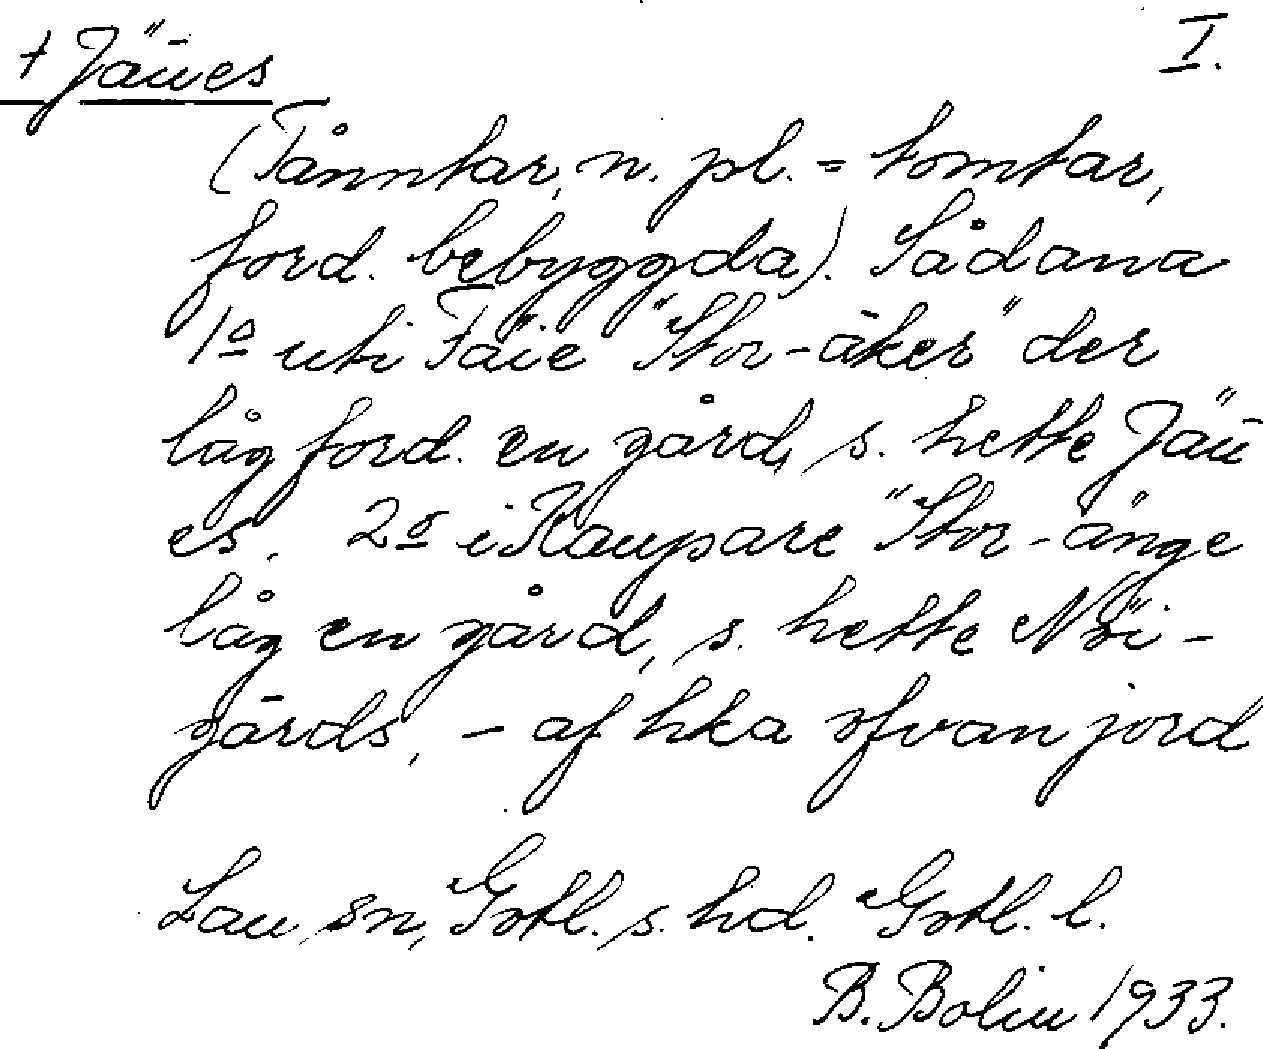 + Jäūes I.
(Tånntar, n. pl. = tomtar,
ford. bebyggda). Sådana
1º uti Fäie "Stor-åker" der
låg ford. en gård, s. hette Jäū
es. 2º i Kaupare "Stor-änge
låg en gård, s. hette Nöi-
gārds, – af hka ofvan jord
Lau sn, Gotl. s. hd. Gotl. l.
B. Bolin 1933.